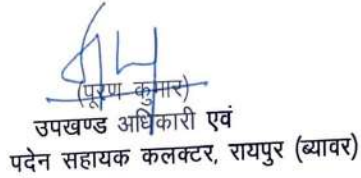 (पूरण कुमार)
उपखण्ड अधिकारी एवं
पदेन सहायक कलक्टर, रायपुर (ब्यावर)